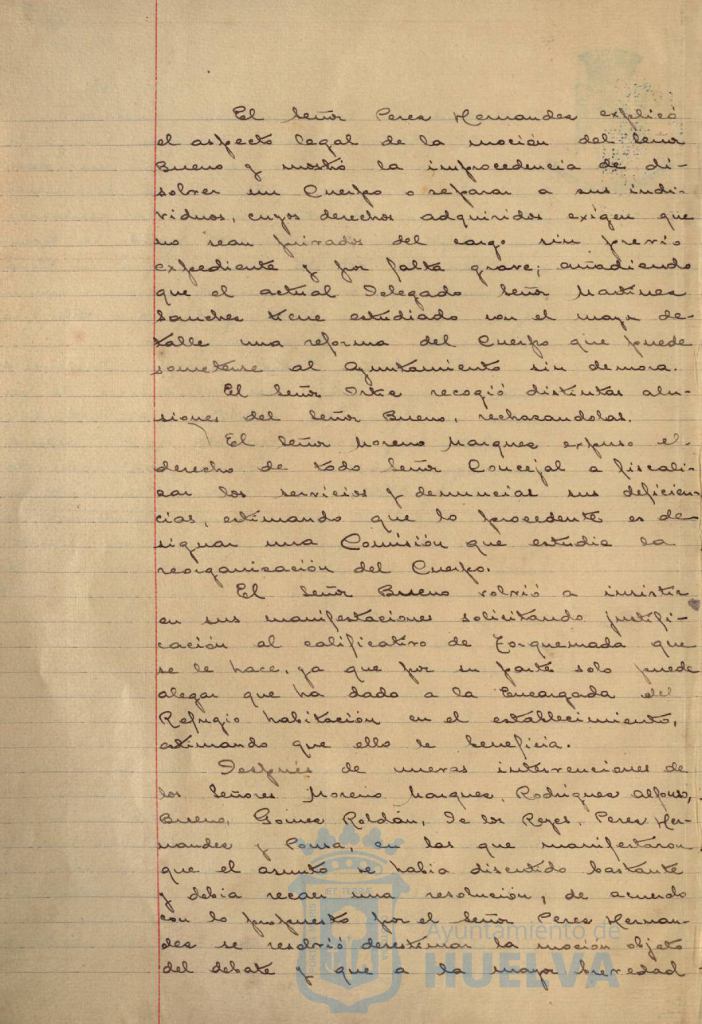 El Señor Perez Hernandez explicó
el aspecto legal de la moción del Señor
Bueno y mostró la improcedencia de di-
solver un Cuerpo o separar a sus indi-
viduos, cuyos derechos adquiridos exigen que
no sean privados del cargo sin previo
expediente y por falta grave; añadiendo
que el actual Delegado Señor Martinez
Sanchez tiene estudiado con el mayor de-
talle una reforma del Cuerpo que puede
someterse al Ayuntamiento sin demora.
El Señor Ortiz recogió distintas alu-
siones del Señor Bueno, rechazandolas.
El Señor Moreno Marquez expuso el
derecho de todo Señor Concejal a fiscali-
zar los servicios y denunciar sus deficien-
cias, estimando que lo procedente es de-
signar una Comisión que estudie la
reorganización del Cuerpo.
El Señor Bueno volvió a insistir
en sus manifestaciones solicitando justifi-
cación al calificativo de Torquemada que
se le hace, ya que por su parte solo puede
alegar que ha dado a la Encargada del
Refugio habitación en el establecimiento,
estimando que ello le beneficia.
Después de nuevas intervenciones de
los Señores Moreno Marquez, Rodriguez Alfonso,
Bueno, Gomez Roldán, De los Reyes, Perez Her-
nandez y Ponsa, en las que manifestaron
que el asunto se habia discutido bastante
y debia recaer una resolución, de acuerdo
con lo propuesto por el Señor Perez Hernan-
dez se resolvió desestimar la moción objeto
del debate y que a la mayor brevedad
Ayuntamiento de
HUELVA